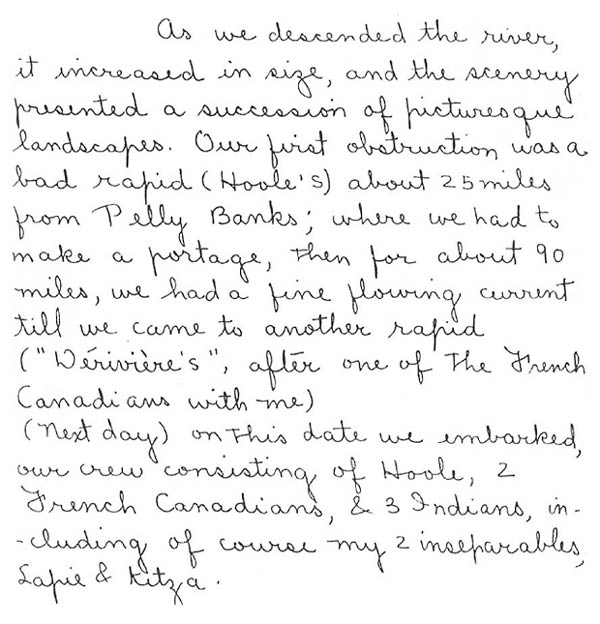 As we descended the river,
it increased in size, and the scenery
presented a succession of picturesque
landscapes. Our first obstruction was a
bad rapid (Hoole's) about 25 miles
from Pelly Banks; where we had to
make a portage, then for about 90
miles, we had a fine flowing current
till we came to another rapid
("Dérivière's", after one of The French
Canadians with me)
(Next day) on This date we embarked,
our crew consisting of Hoole, 2
French Canadians, & 3 Indians, in-
-cluding of course my 2 inseparables,
Lapie & Kitza.